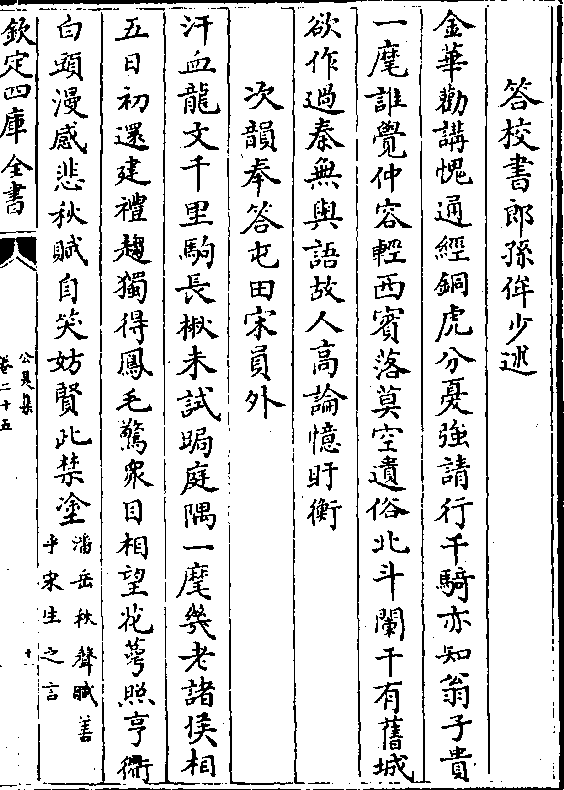 答校書郎孫侔少述
金華勸講愧通經銅虎分憂強請行千騎亦知翁子貴
一麾誰覺仲容輕西賓落莫空遺俗北斗闌干有舊城
欲作過秦無與語故人高論憶盱衡
次韻奉答屯田宋員外
汗血龍文千里駒長楸未試跼庭隅一麾㡬老諸侯相
五日初還建禮趨獨得鳳毛驚衆目相望花萼照亨衢
白頭漫感悲秋賦自笑妨賢此禁塗潘岳秋聲賦善
乎宋生之言
欽定四庫全書
公是集
卷二十五
十一